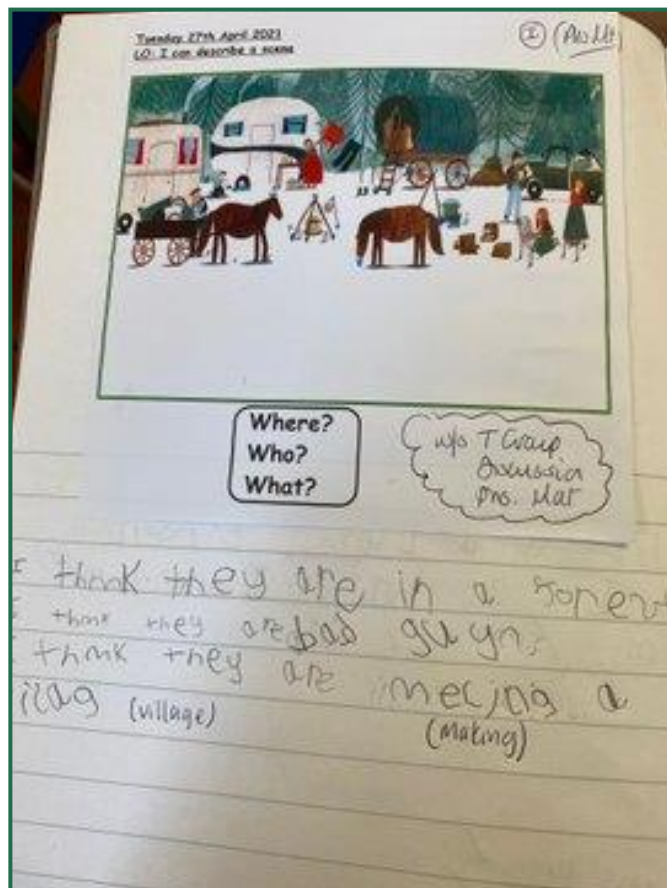 Tuesday 27th April 2021
LO: I can describe a scene
I
Where?
Who?
What?
w/s T Group
Discussion
pns. Mat
I think they are in a
I think they are bad guys.
I think they are mecing a
ilag (village)
(making)